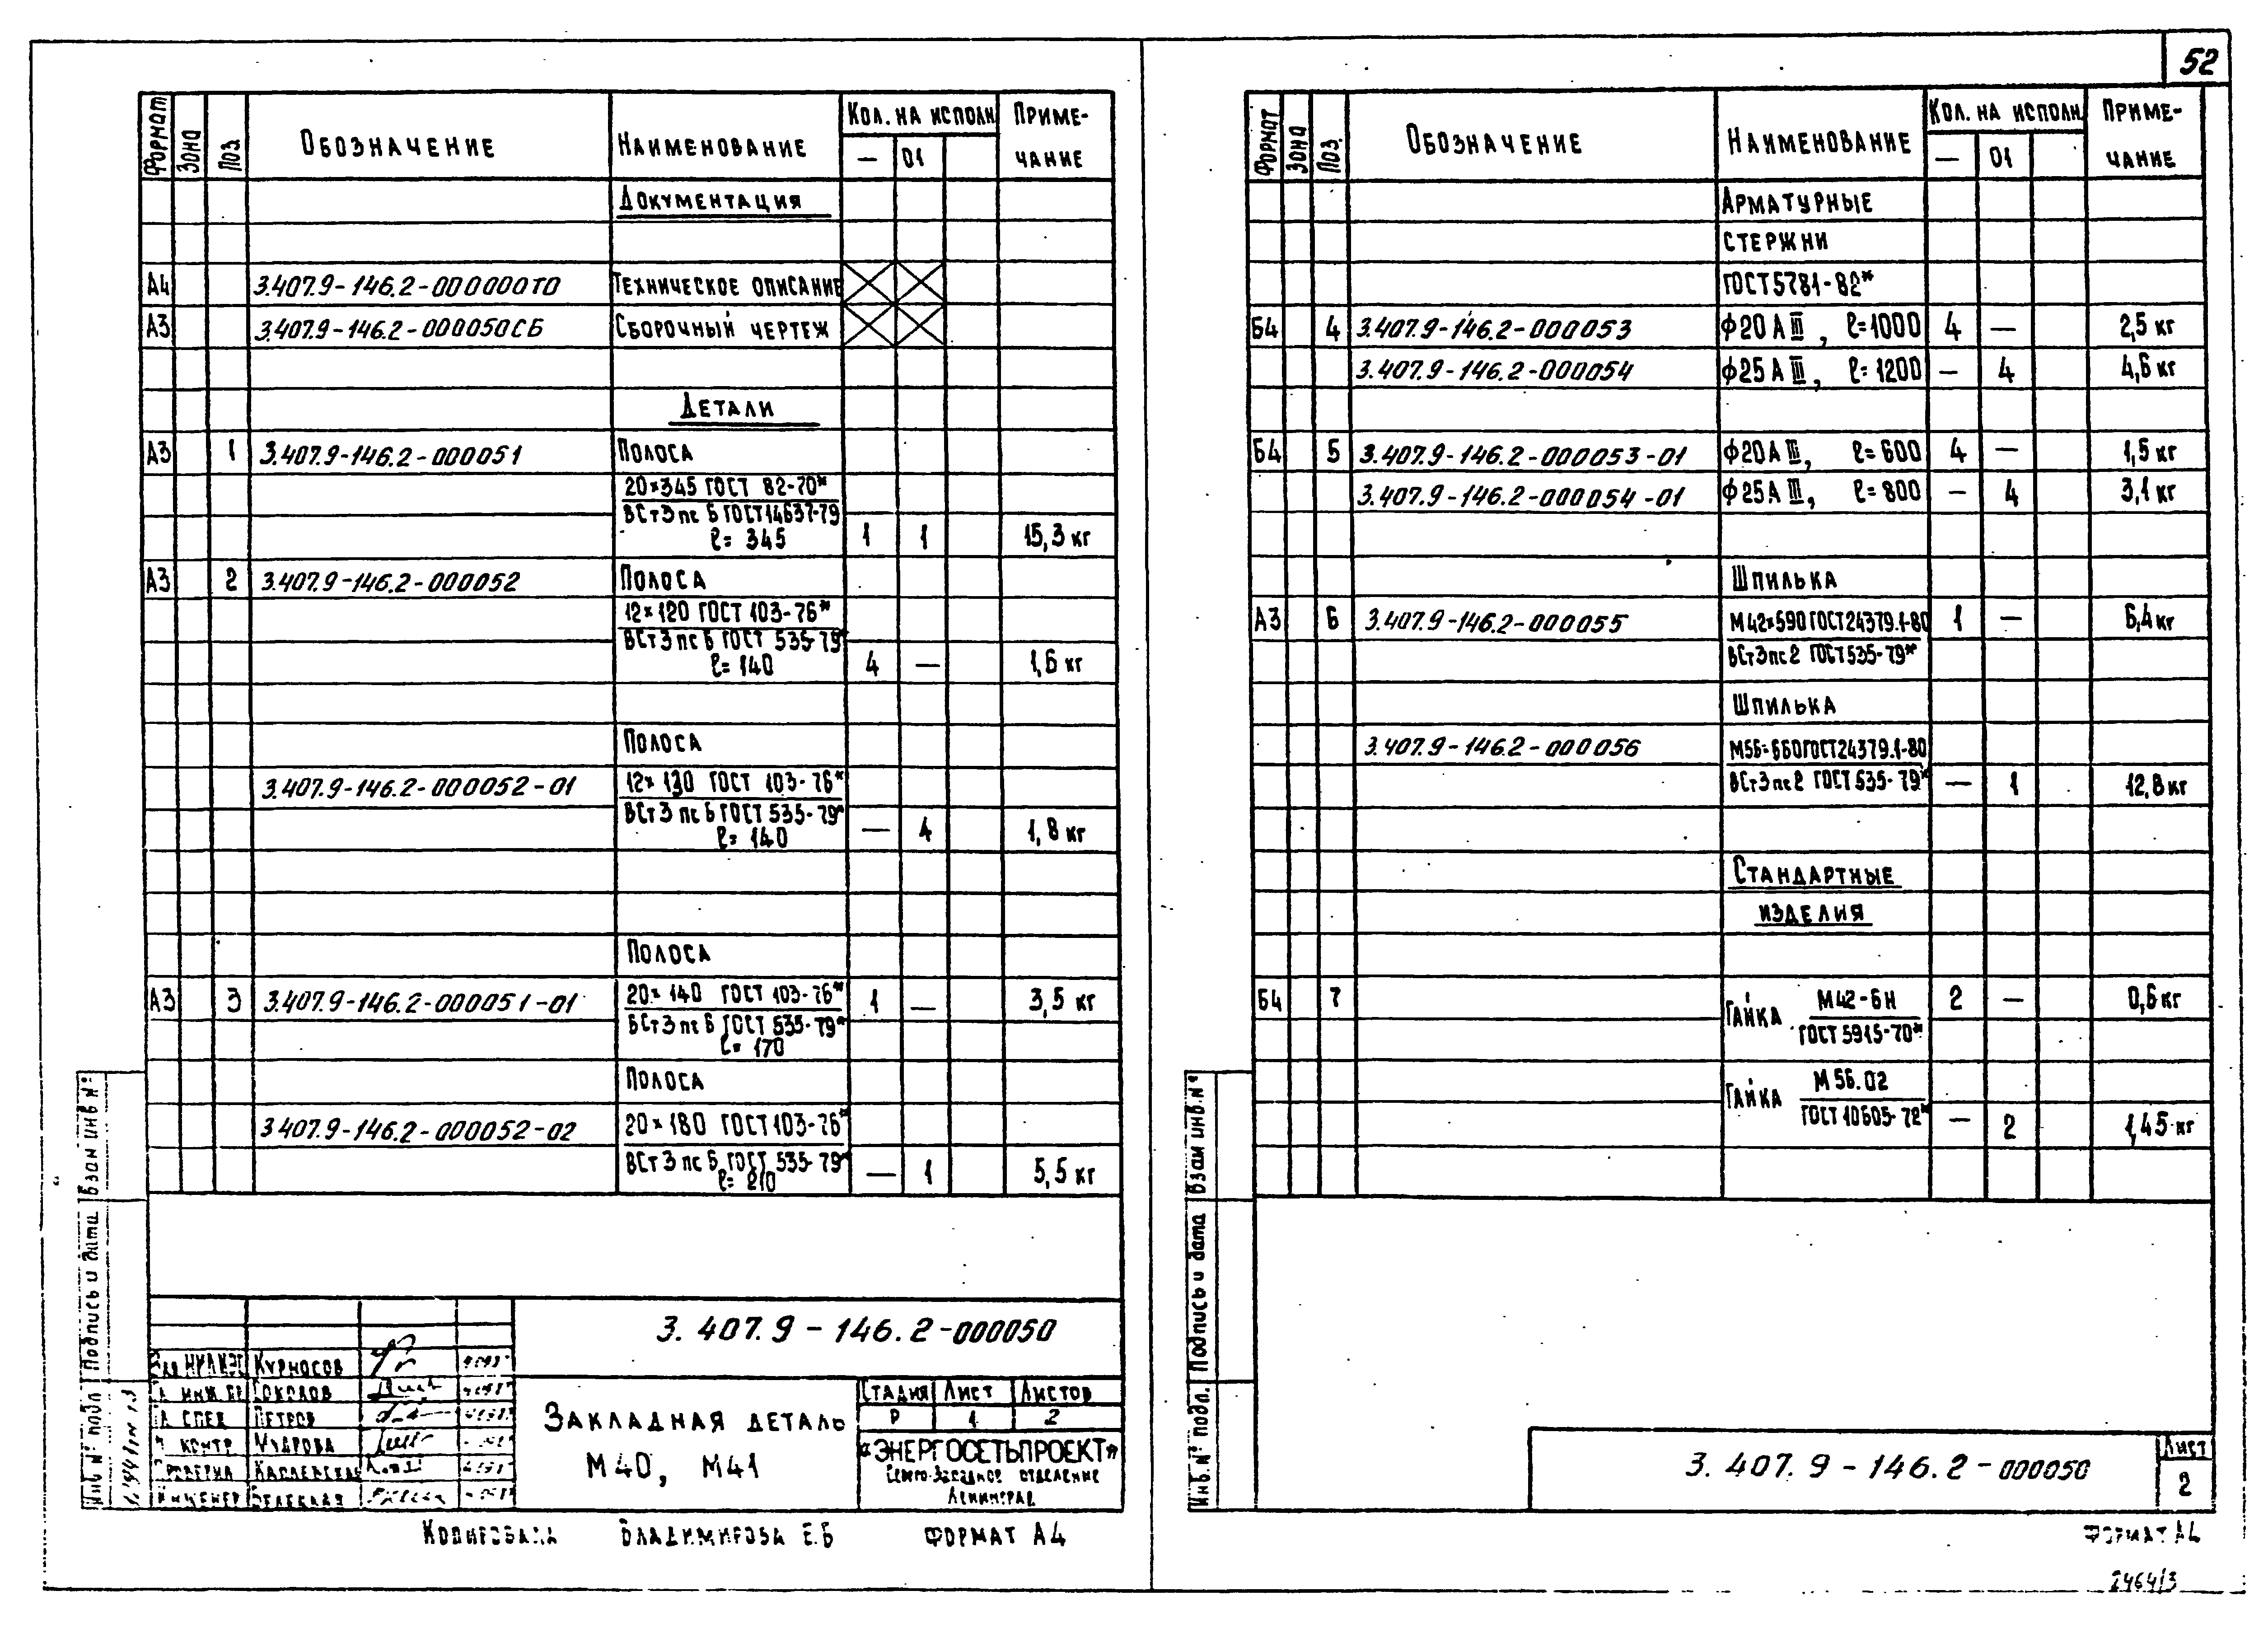 52
Формат Зона Поз. Обозначение Наименование Кол. на исполн Приме-
чание
— 01
Документация
А4 3.407.9-146.2-000000ТО Техническое описание
А3 3.407.9-146.2-000050СБ Сборочный чертеж
Детали
А3 1 3.407.9-146.2-000051 Полоса
20×345 ГОСТ 82-70*
ВСт3пс6 ГОСТ14637-79
ℓ= 345 1 1 15,3 кг
А3 2 3.407.9-146.2-000052 Полоса
12×120 ГОСТ 103-76*
ВСт3пс6 ГОСТ 535-79*
ℓ= 140 4 — 1,6 кг
Полоса
3.407.9-146.2-000052-01 12×130 ГОСТ 103-76*
ВСт3пс6 ГОСТ 535-79*
ℓ= 140 — 4 1,8 кг
Полоса
А3 3 3.407.9-146.2-000051-01 20×140 ГОСТ 103-76* 1 — 3,5 кг
ВСт3пс6 ГОСТ 535-79*
ℓ= 170
Полоса
3.407.9-146.2-000052-02 20×180 ГОСТ103-76*
ВСт3пс6 ГОСТ 535-79*
ℓ= 210 — 1 5,5 кг
Взам инв.№
Подпись и дата
Инв № подл
3.407.9-146.2-000050
Курносов
Соколов
Гл спец Петров
Н контр Мудрова
Проверил
Инженер
Закладная деталь
М40, М41
Стадия Лист Листов
Р 1 2
«ЭНЕРГОСЕТЬПРОЕКТ»
Северо-Западное отделение
Ленинград
Копировала Владимирова Е.Б Формат А4
Формат Зона Поз. Обозначение Наименование Кол. на исполн Приме-
чание
— 01
Арматурные
стержни
ГОСТ5781-82*
Б4 4 3.407.9-146.2-000053 ф20АIII, ℓ=1000 4 — 2,5 кг
3.407.9-146.2-000054 ф25АIII, ℓ=1200 — 4 4,6 кг
Б4 5 3.407.9-146.2-000053-01 ф20АIII, ℓ=600 4 — 1,5 кг
3.407.9-146.2-000054-01 ф25АIII, ℓ=800 — 4 3,1 кг
Шпилька
А3 6 3.407.9-146.2-000055 М42×590ГОСТ24379.1-80 1 — 6,4 кг
ВСт3пс2 ГОСТ535-79*
Шпилька
3.407.9-146.2-000056 М56×660ГОСТ24379.1-80
ВСт3пс2 ГОСТ535-79* — 1 12,8 кг
Стандартные
изделия
Б4 7 Гайка М42-6Н 2 — 0,6 кг
ГОСТ 5915-70*
Гайка М56.02
ГОСТ 10605-72* — 2 1,45 кг
Взам инв.№
Подпись и дата
Инв.№ подл.
3.407.9-146.2-000050
Лист
2
Формат А4
2464/3